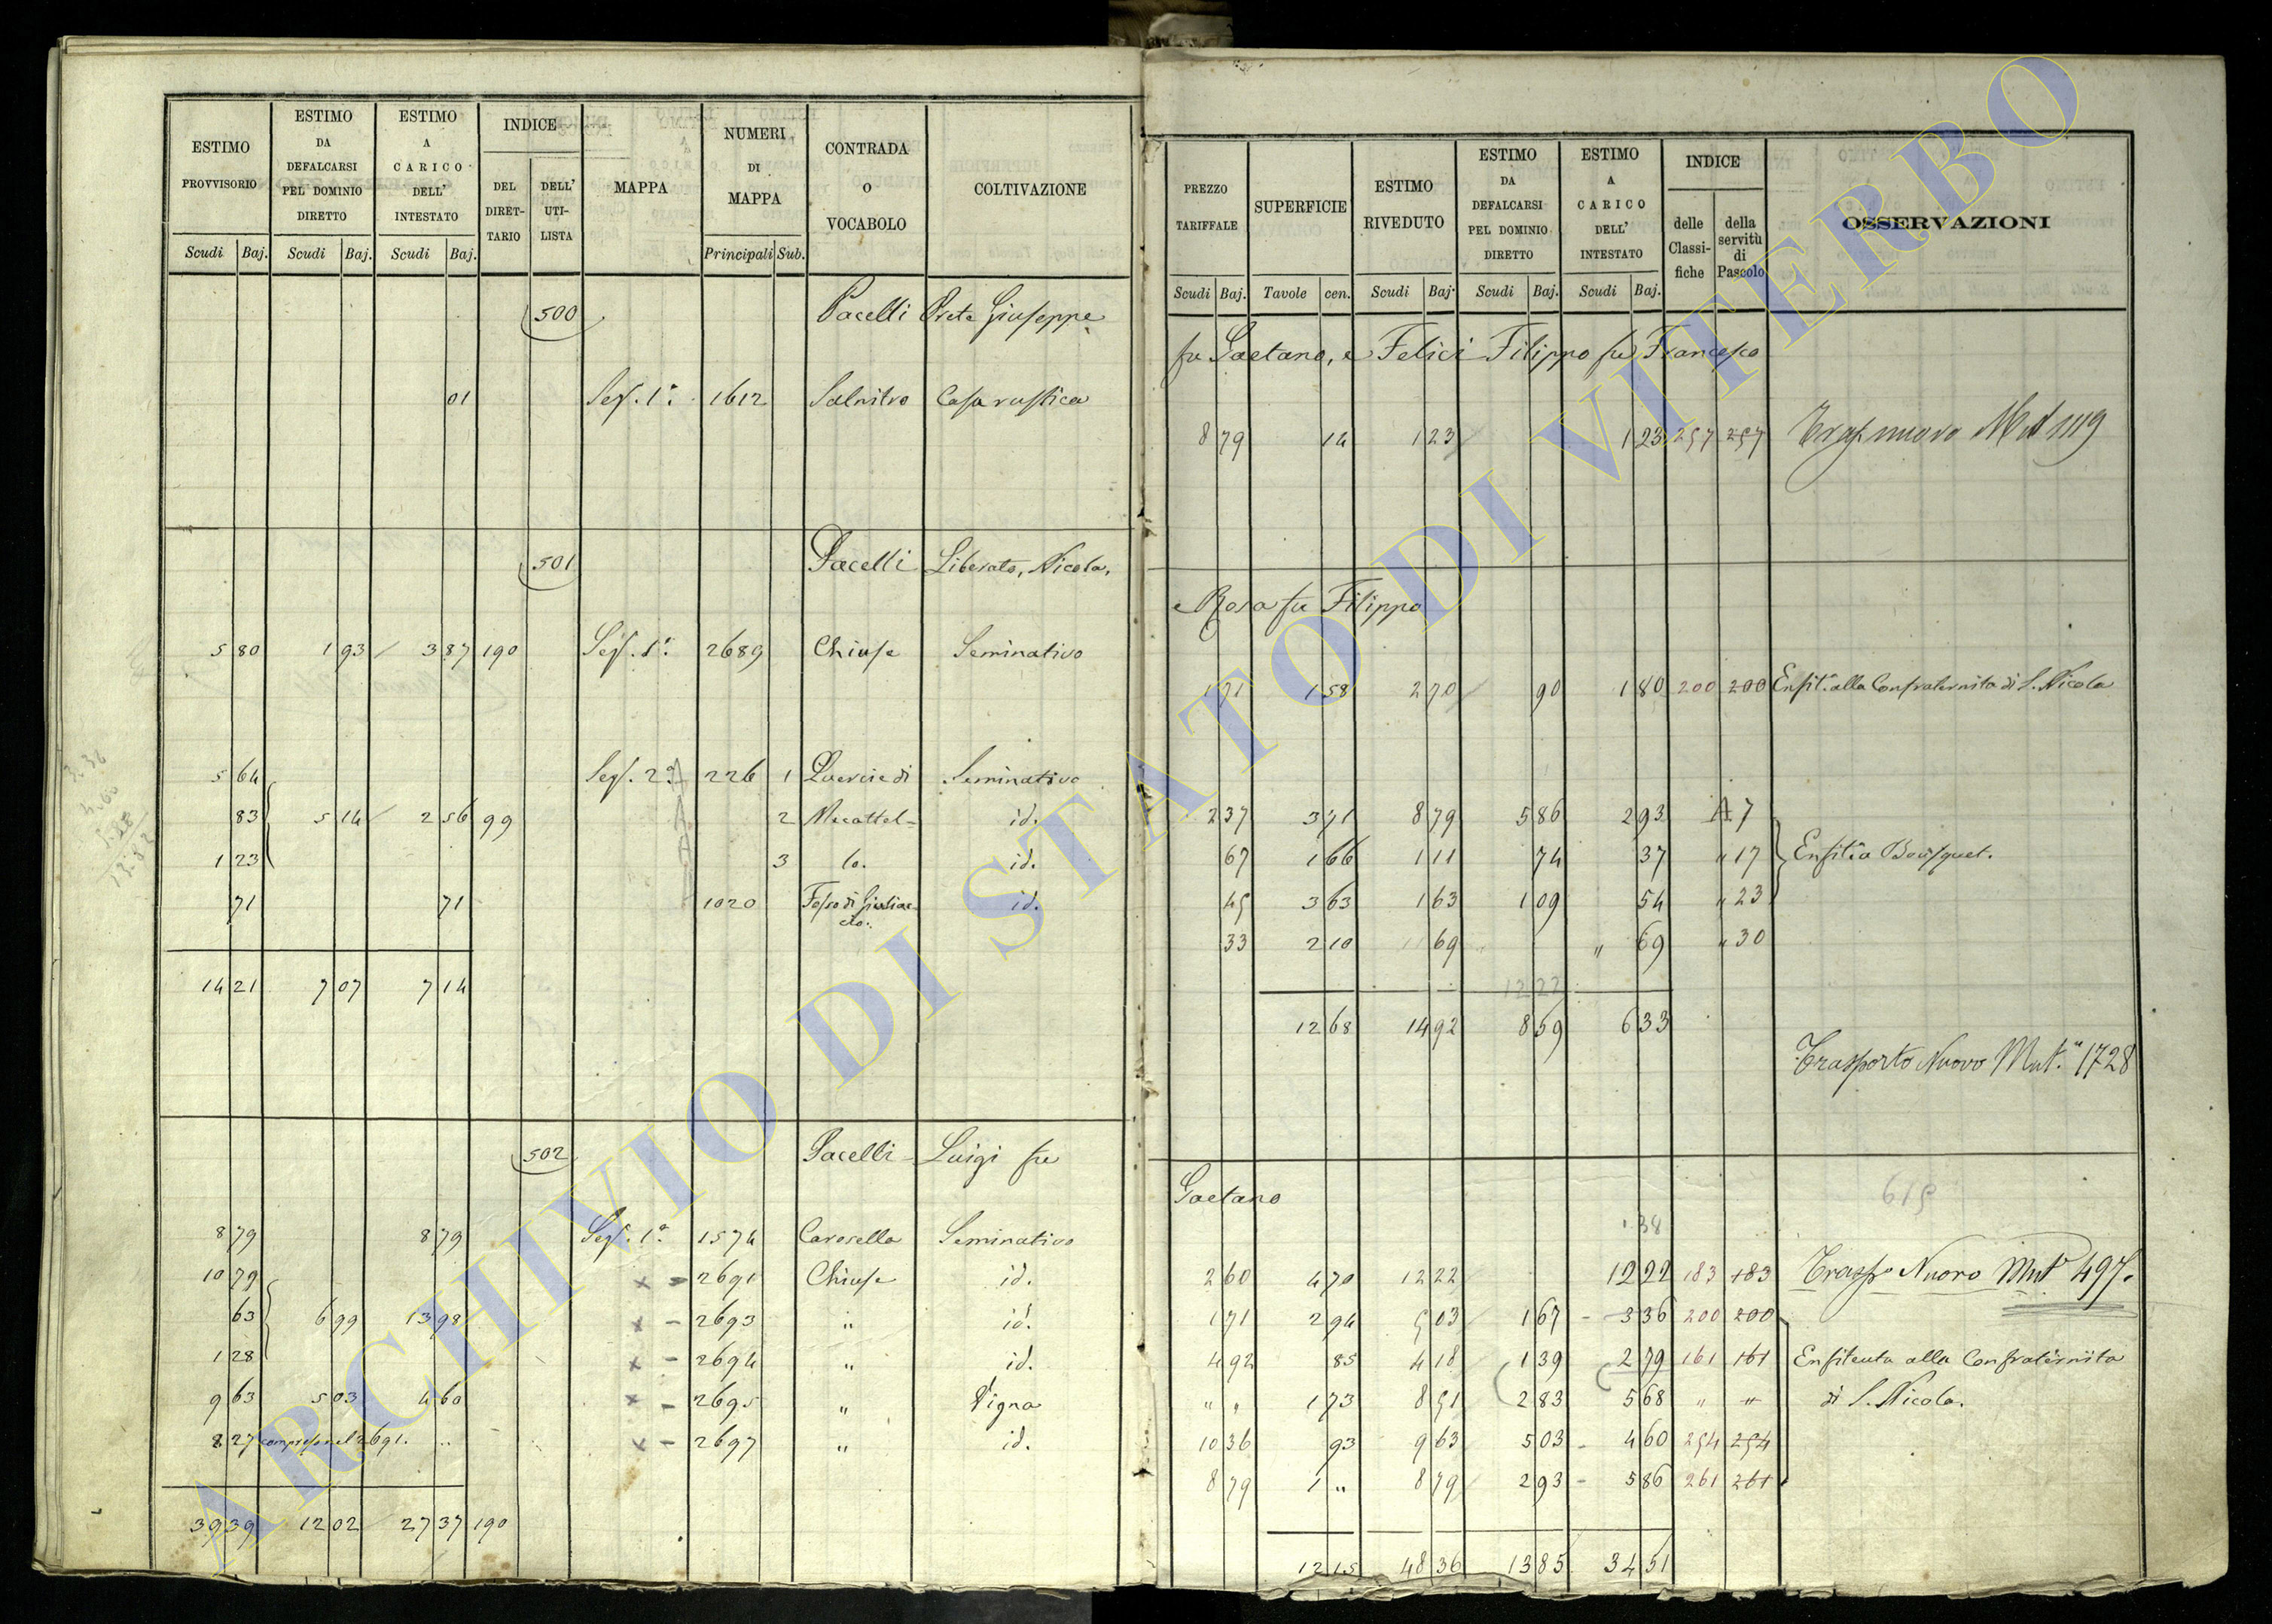 ESTIMO PROVVISORIO | ESTIMO DA DEFALCARSI PEL DOMINIO DIRETTO | ESTIMO A CARICO DELL' INTESTATO | INDICE | MAPPA | NUMERI DI MAPPA | CONTRADA O VOCABOLO | COLTIVAZIONE
DEL DIRET-TARIO | DELL' UTI-LISTA
Scudi | Baj. | Scudi | Baj. | Scudi | Baj. | Principali | Sub.
500 Pacelli Prete Giuseppe
01 Sez. 1a 1612 Salnitro Casa rustica
501 Pacelli Liberato, Nicola,
5 80 1 93 3 87 190 Sez. 1a 2689 Chiuse Seminativo
5 64 Sez. 2a 226 1 Quercie di Seminativo
83 5 14 2 56 99 2 Mecattel= id.
1 23 3 lo. id.
71 71 1020 Fosso di id.
14 21 7 07 7 14
502 Pacelli Luigi fu
8 79 8 79 Sez. 1a 1574 Carosella Seminativo
10 79 x - 2691 Chiuse id.
63 6 99 13 98 x - 2693 " id.
1 28 x - 2694 " id.
9 63 5 03 4 60 x - 2695 " Vigna
8 27 compreso nel 2691. x - 2697 " id.
39 39 12 02 27 37 190
PREZZO TARIFFALE | SUPERFICIE | ESTIMO RIVEDUTO | ESTIMO DA DEFALCARSI PEL DOMINIO DIRETTO | ESTIMO A CARICO DELL' INTESTATO | INDICE | OSSERVAZIONI
delle Classi-fiche | della servitù di Pascolo
Scudi | Baj. | Tavole | cen. | Scudi | Baj. | Scudi | Baj. | Scudi | Baj.
fu Gaetano, e Felici Filippo fu Francesco
8 79 14 1 23 1 23 257 257 Trasp. nuovo Mut 1119
e Rosa fu Filippo
1 71 1 58 2 70 90 1 80 200 200 Enfit. alla Confraternita di S. Nicola
2 37 3 71 8 79 5 86 2 93 A 7
67 1 66 1 11 74 37 " 17 Enfit. a Bousquet.
45 3 63 1 63 1 09 54 " 23
33 2 10 69 " 69 " 30
12 22
12 68 14 92 8 59 6 33
Trasporto Nuovo Mut. 1728
Gaetano
619
38
2 60 4 70 12 22 12 22 183 183 Trasp. Nuovo Mut 497.
1 71 2 94 5 03 1 67 - 3 36 200 200
4 92 85 4 18 1 39 2 79 161 161 Enfiteuta alla Confraternita
" " 1 73 8 51 2 83 5 68 " " di S. Nicola.
10 36 93 9 63 5 03 - 4 60 254 254
8 79 1 " 8 79 2 93 - 5 86 261 261
12 15 48 36 13 85 34 51
ARCHIVIO DI STATO DI VITERBO